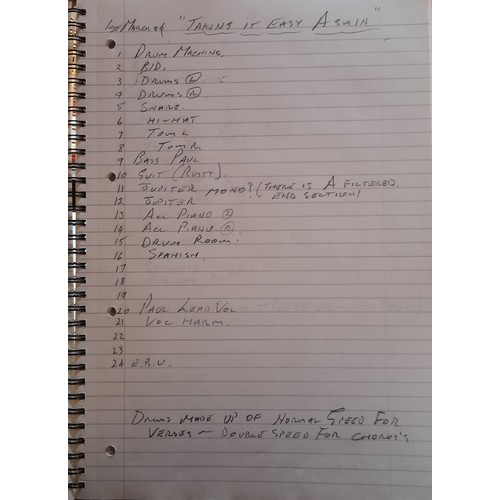 1st March 84 "TAKING IT EASY AGAIN"
1 DRUM MACHINE.
2 B/D.
3 DRUMS (L)
4 DRUMS (R)
5 SNARE.
6 HI-HAT
7 TOM L.
8 TOM R.
9 BASS PAUL
10 GUIT (RUSTY).
11 JUPITER MONO? (THERE IS A FILTERED
12 JUPITER END SECTION)
13 ACC PIANO (L)
14 ACC PIANO. (R)
15 DRUM ROOM.
16 SPANISH.
17
18
19
20 PAUL LEAD VOC
21 VOC HARM.
22
23
24 E.R.U.
DRUMS MADE UP OF NORMAL SPEED FOR
VERSES ~ DOUBLE SPEED FOR CHORUS'S